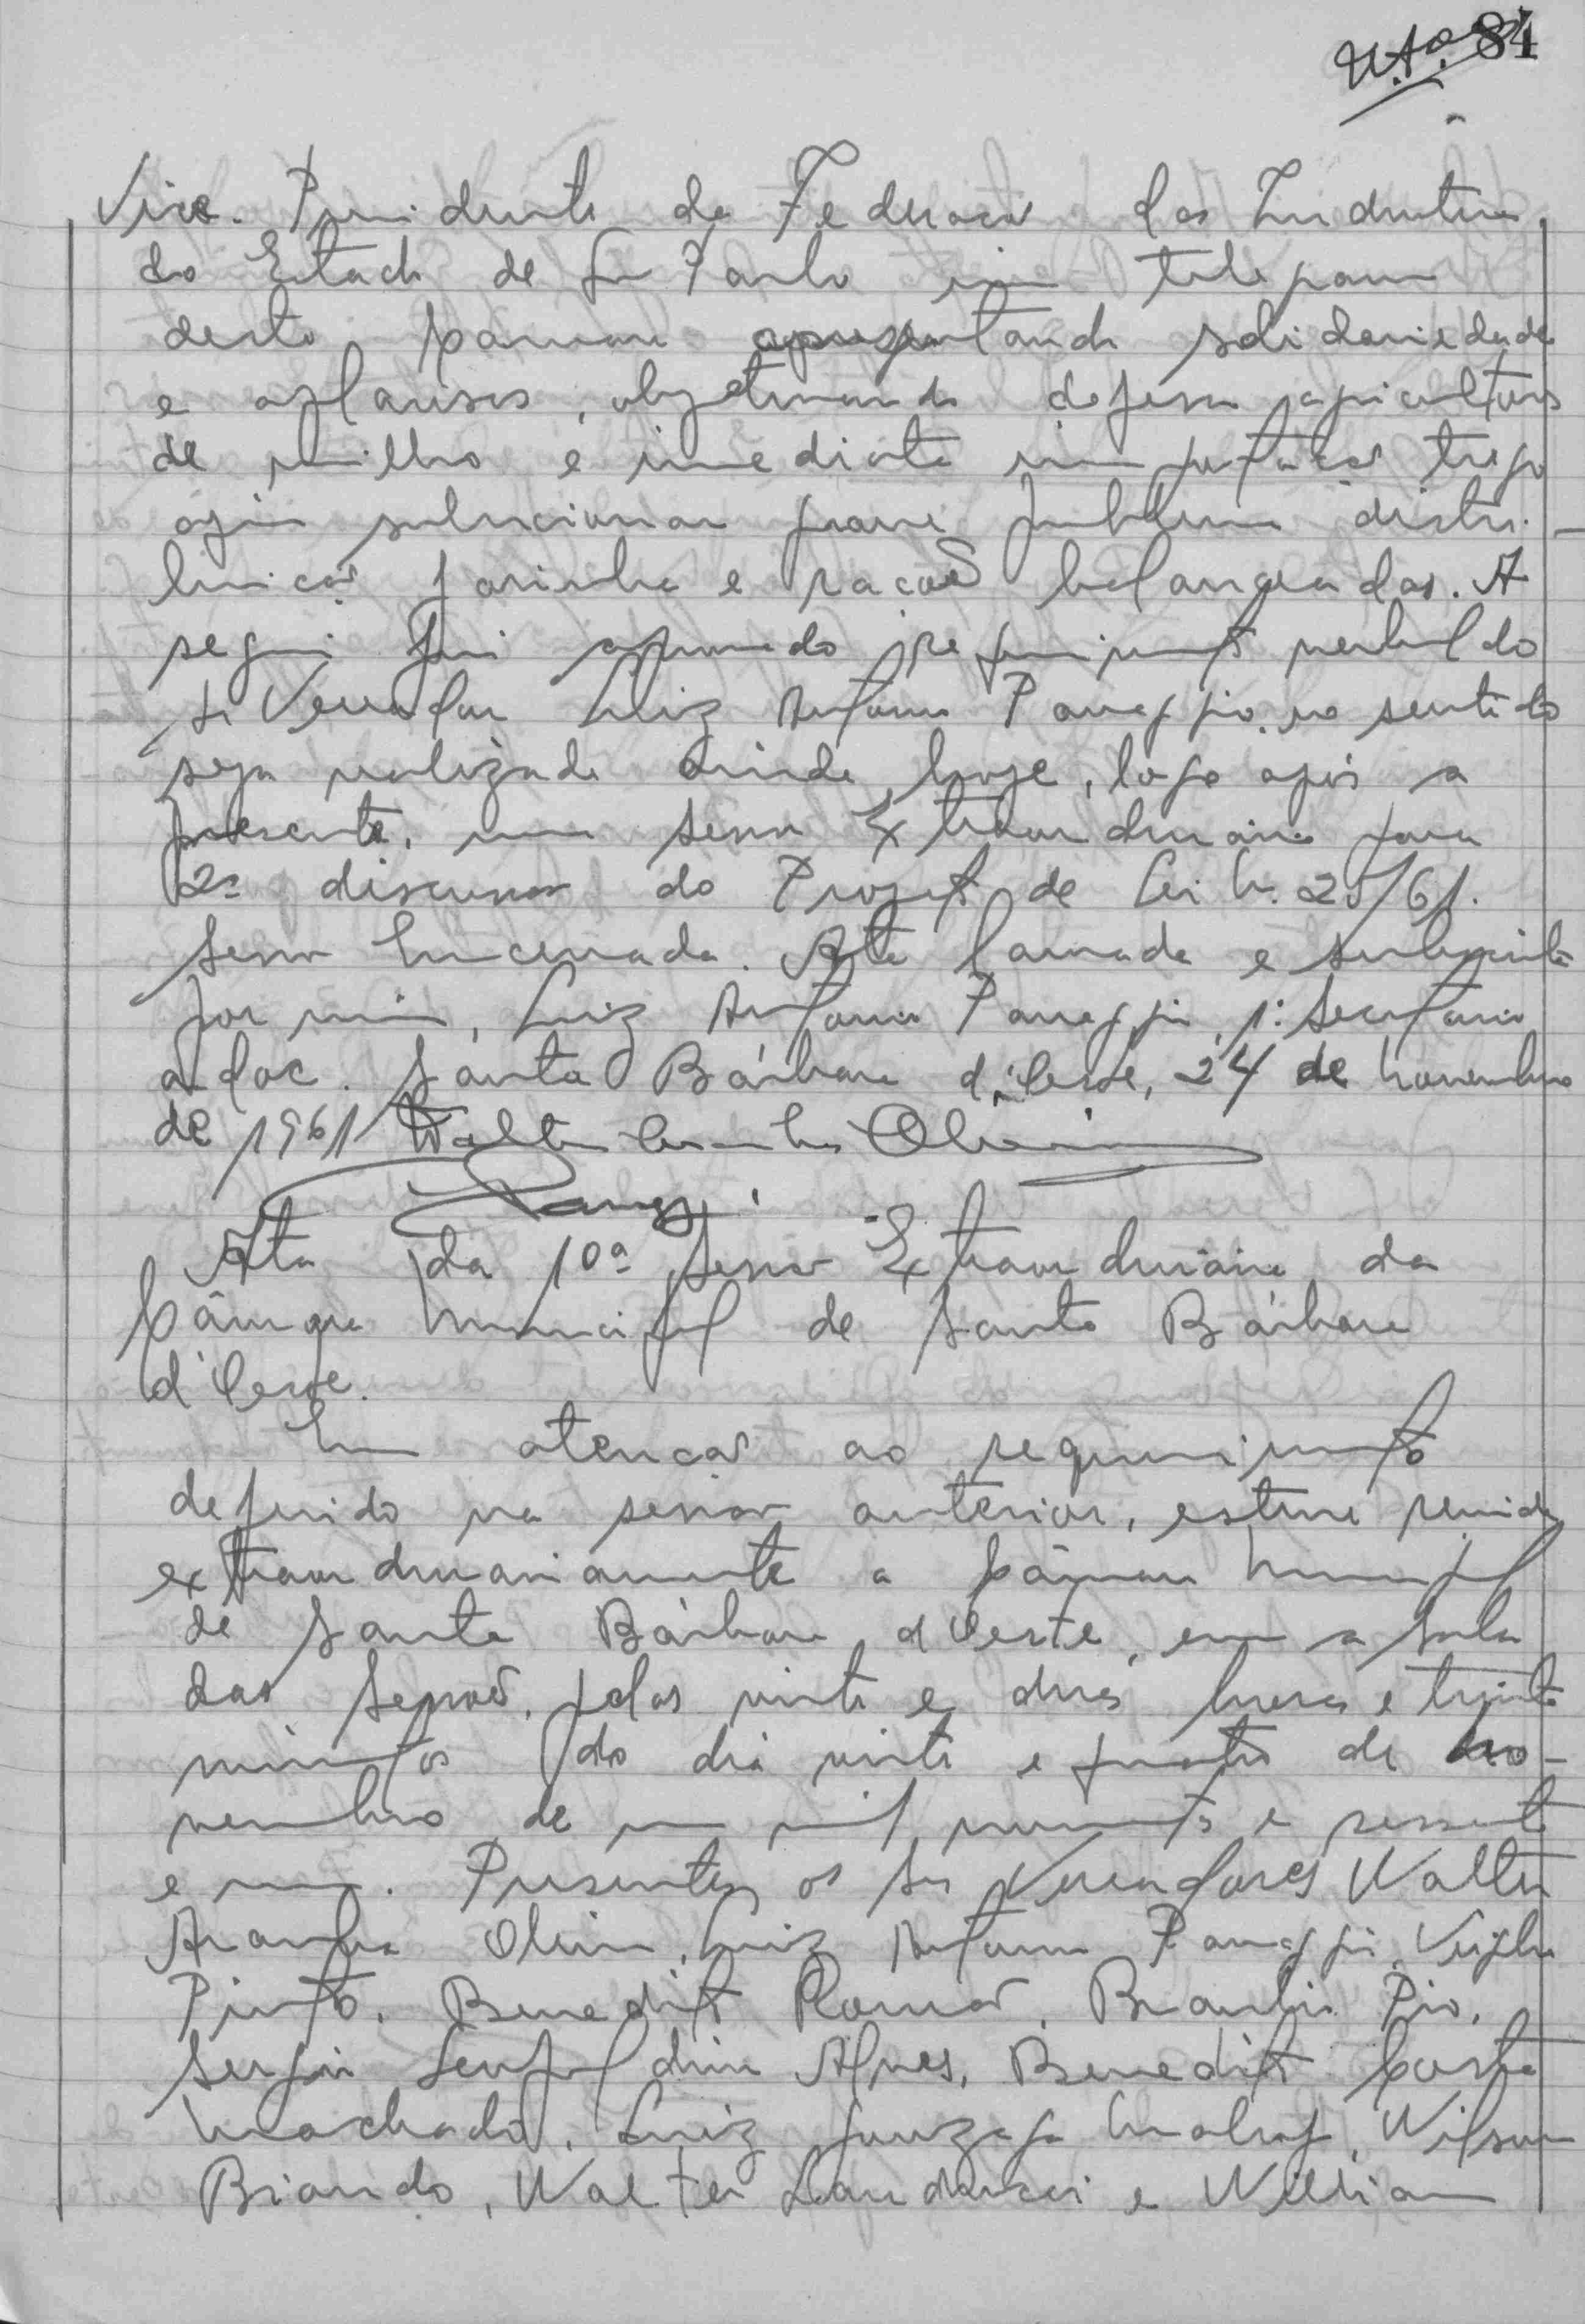 84
Vice-Presidente da Federação das Industrias
do Estado de São Paulo em telegrama
desta Câmara apresentando solidariedade
e aplausos, objetivando defesa agricultores
de milho e imediata importação trigo
afim solucionar grave problema distri-
buição farinha e rações balanceadas. A
seguir foi aprovado requerimento verbal do
Sr Vereador Luiz Antonio Panaggio no sentido
seja realizada ainda hoje, logo após a
presente, uma sessão Extraordinária para
2ª discussão do Projeto de Lei n. 25/61.
Sessão Encerrada. Ata lavrada e subscrita
por mim, Luiz Antonio Panaggio, 1º Secretario
ad oc. Santa Bárbara d'Oeste, 24 de novembro
de 1961 Walter Oliveira
Ata da 10ª Sessão Extraordinária da
Câmara Municipal de Santa Bárbara
d'Oeste.
Em atenção ao requerimento
deferido na sessão anterior, esteve reunida
extraordinariamente a Câmara Municipal
de Santa Bárbara d'Oeste, em a sala
das Sessões, pelas vinte e duas horas e trinta
minutos do dia vinte e quatro de no-
vembro de um mil novecentos e sessenta
e um. Presentes os Srs Vereadores Walter
Aranha Oliveira, Luiz Antonio Panaggio, Virgilio
Pinto, Benedito Romão, Braulio Pio,
Sergio Leopoldino Alves, Benedito Costa
Machado, Luiz Gonzaga, Wilson
Biando, Walter Landucci e Willian